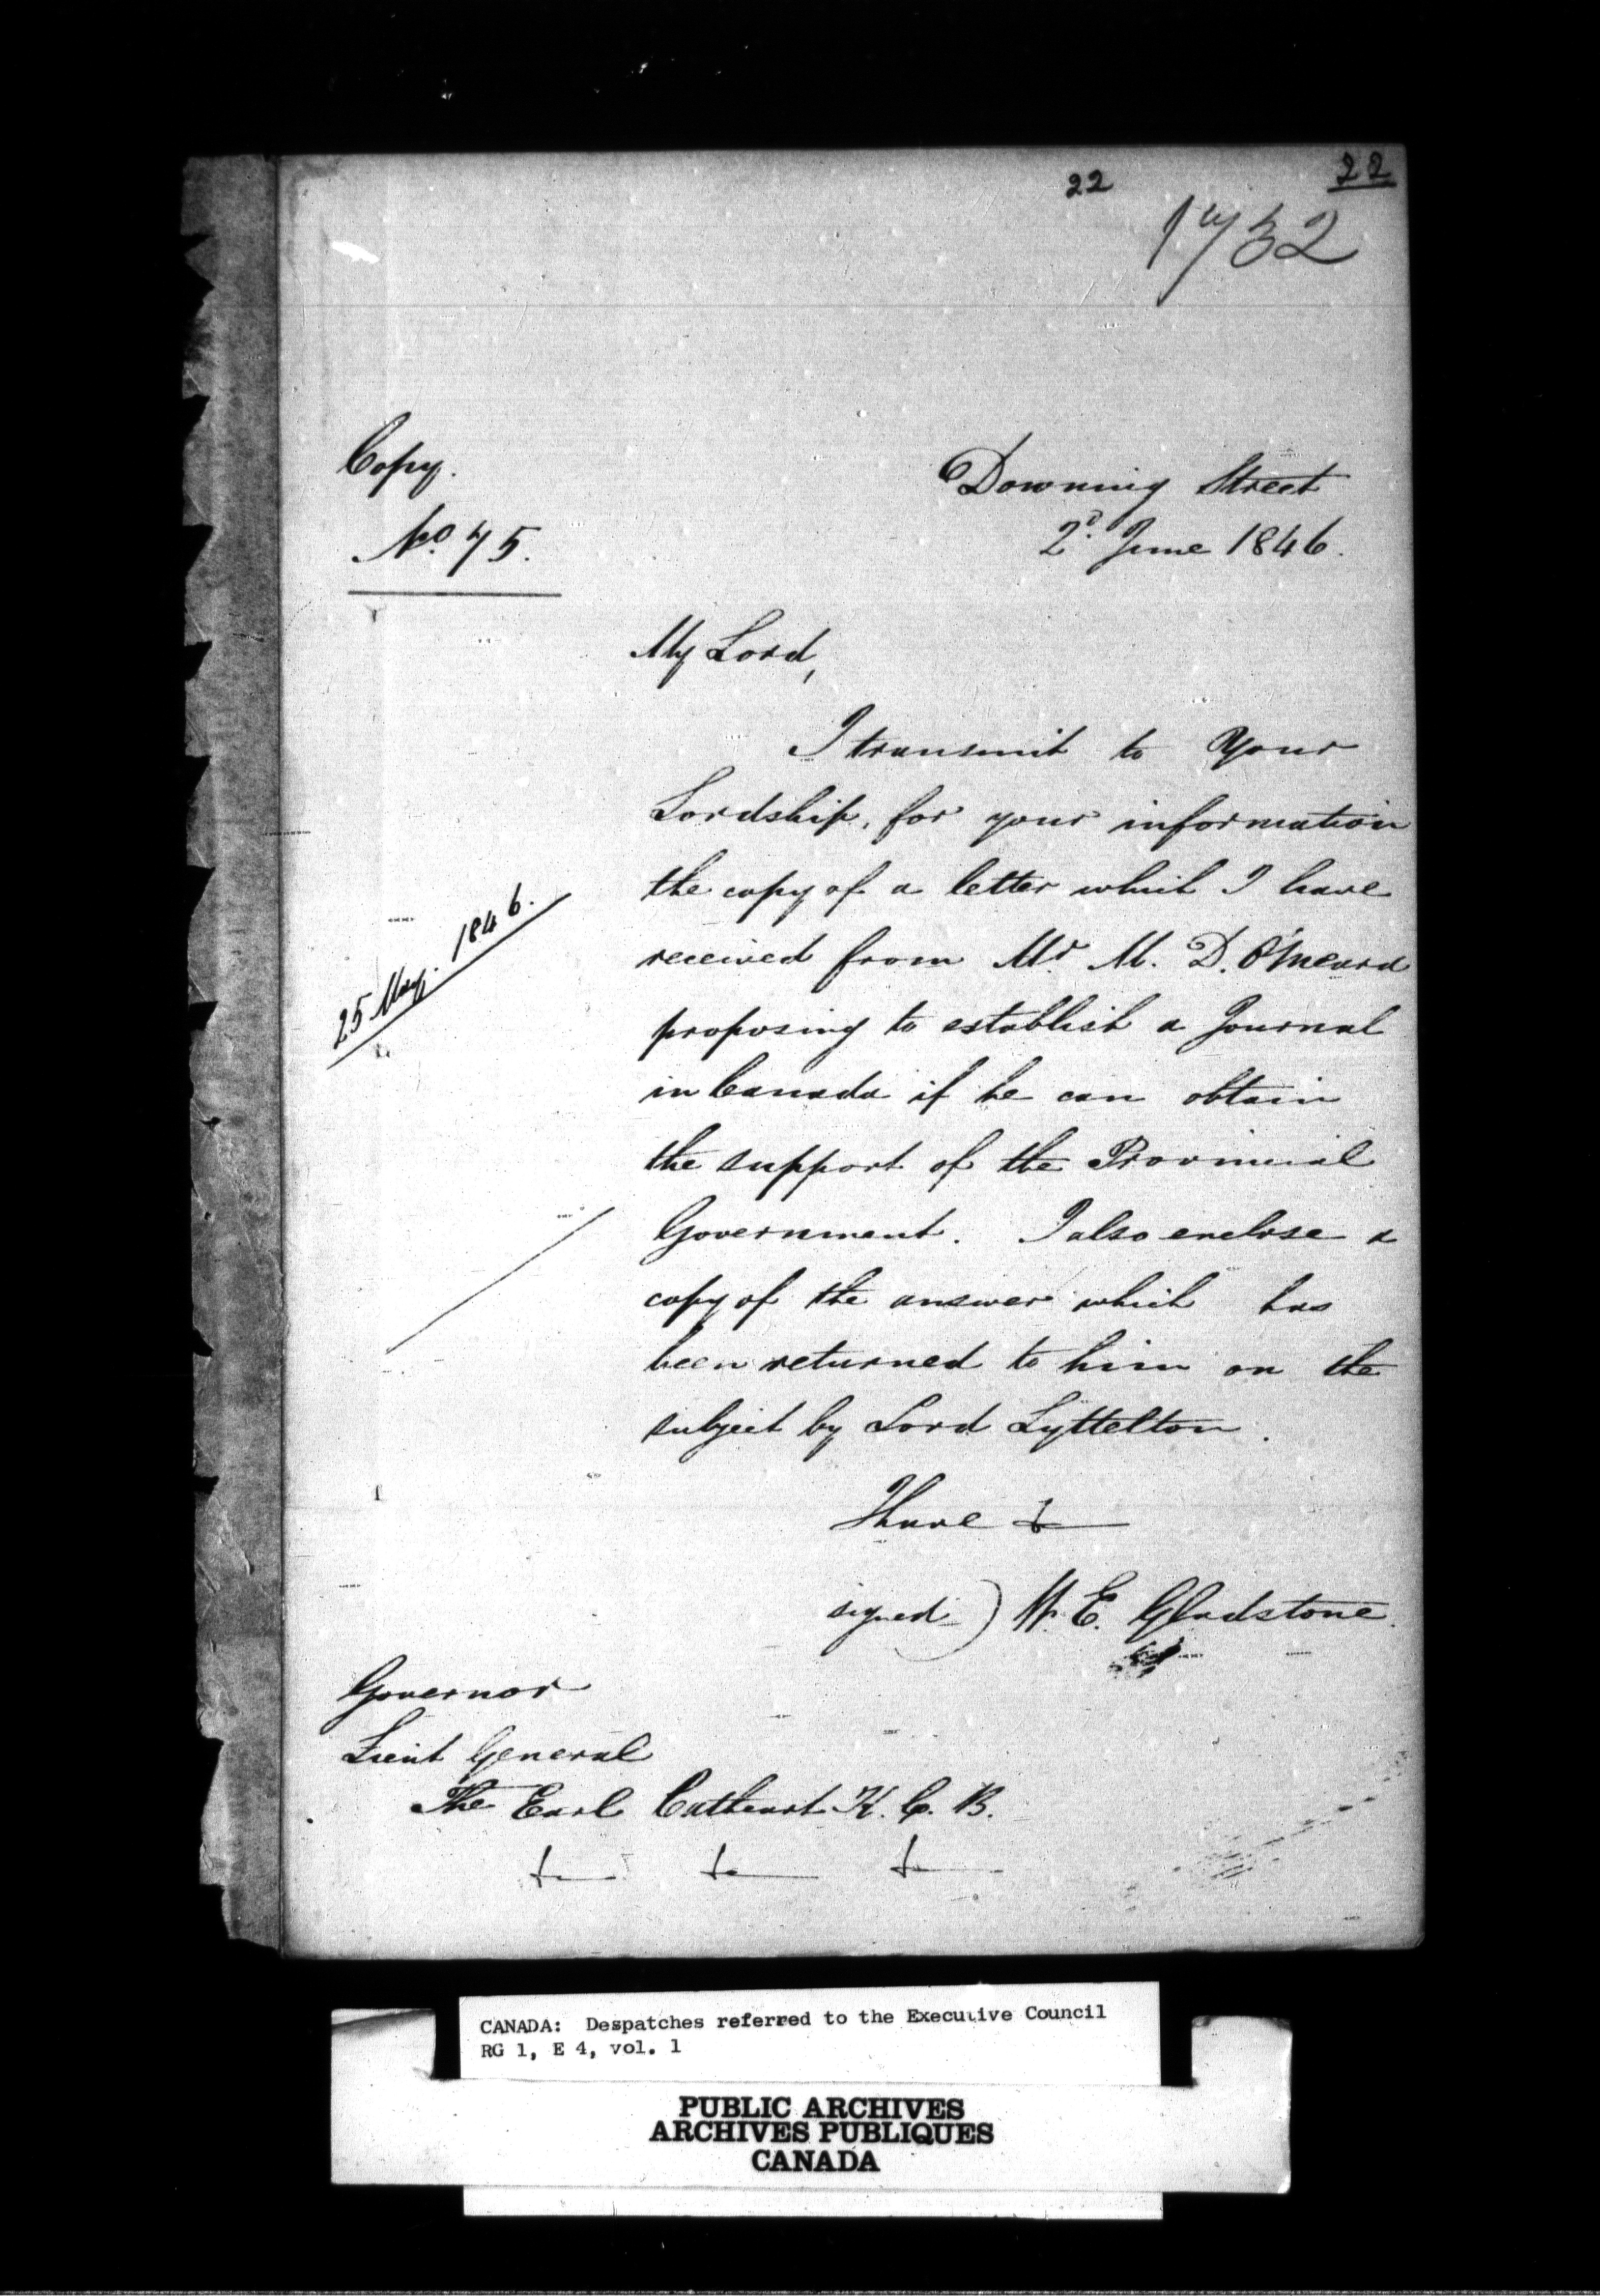 22
22
1732
Copy.
No. 75.
Downing Street
2d. June 1846.
My Lord,
I transmit to Your
Lordship, for your information
the copy of a letter which I have
25 May. 1846.
received from Mr M. D. O'Meara
proposing to establish a Journal
in Canada if he can obtain
the support of the Provincial
Government. I also enclose a
copy of the answer which has
been returned to him on the
subject by Lord Lyttelton.
I have &
signed) W. E. Gladstone.
Governor
Lieut General
The Earl Cathcart K. C. B.
&c &c &c
CANADA: Despatches referred to the Executive Council
RG 1, E 4, vol. 1
PUBLIC ARCHIVES
ARCHIVES PUBLIQUES
CANADA